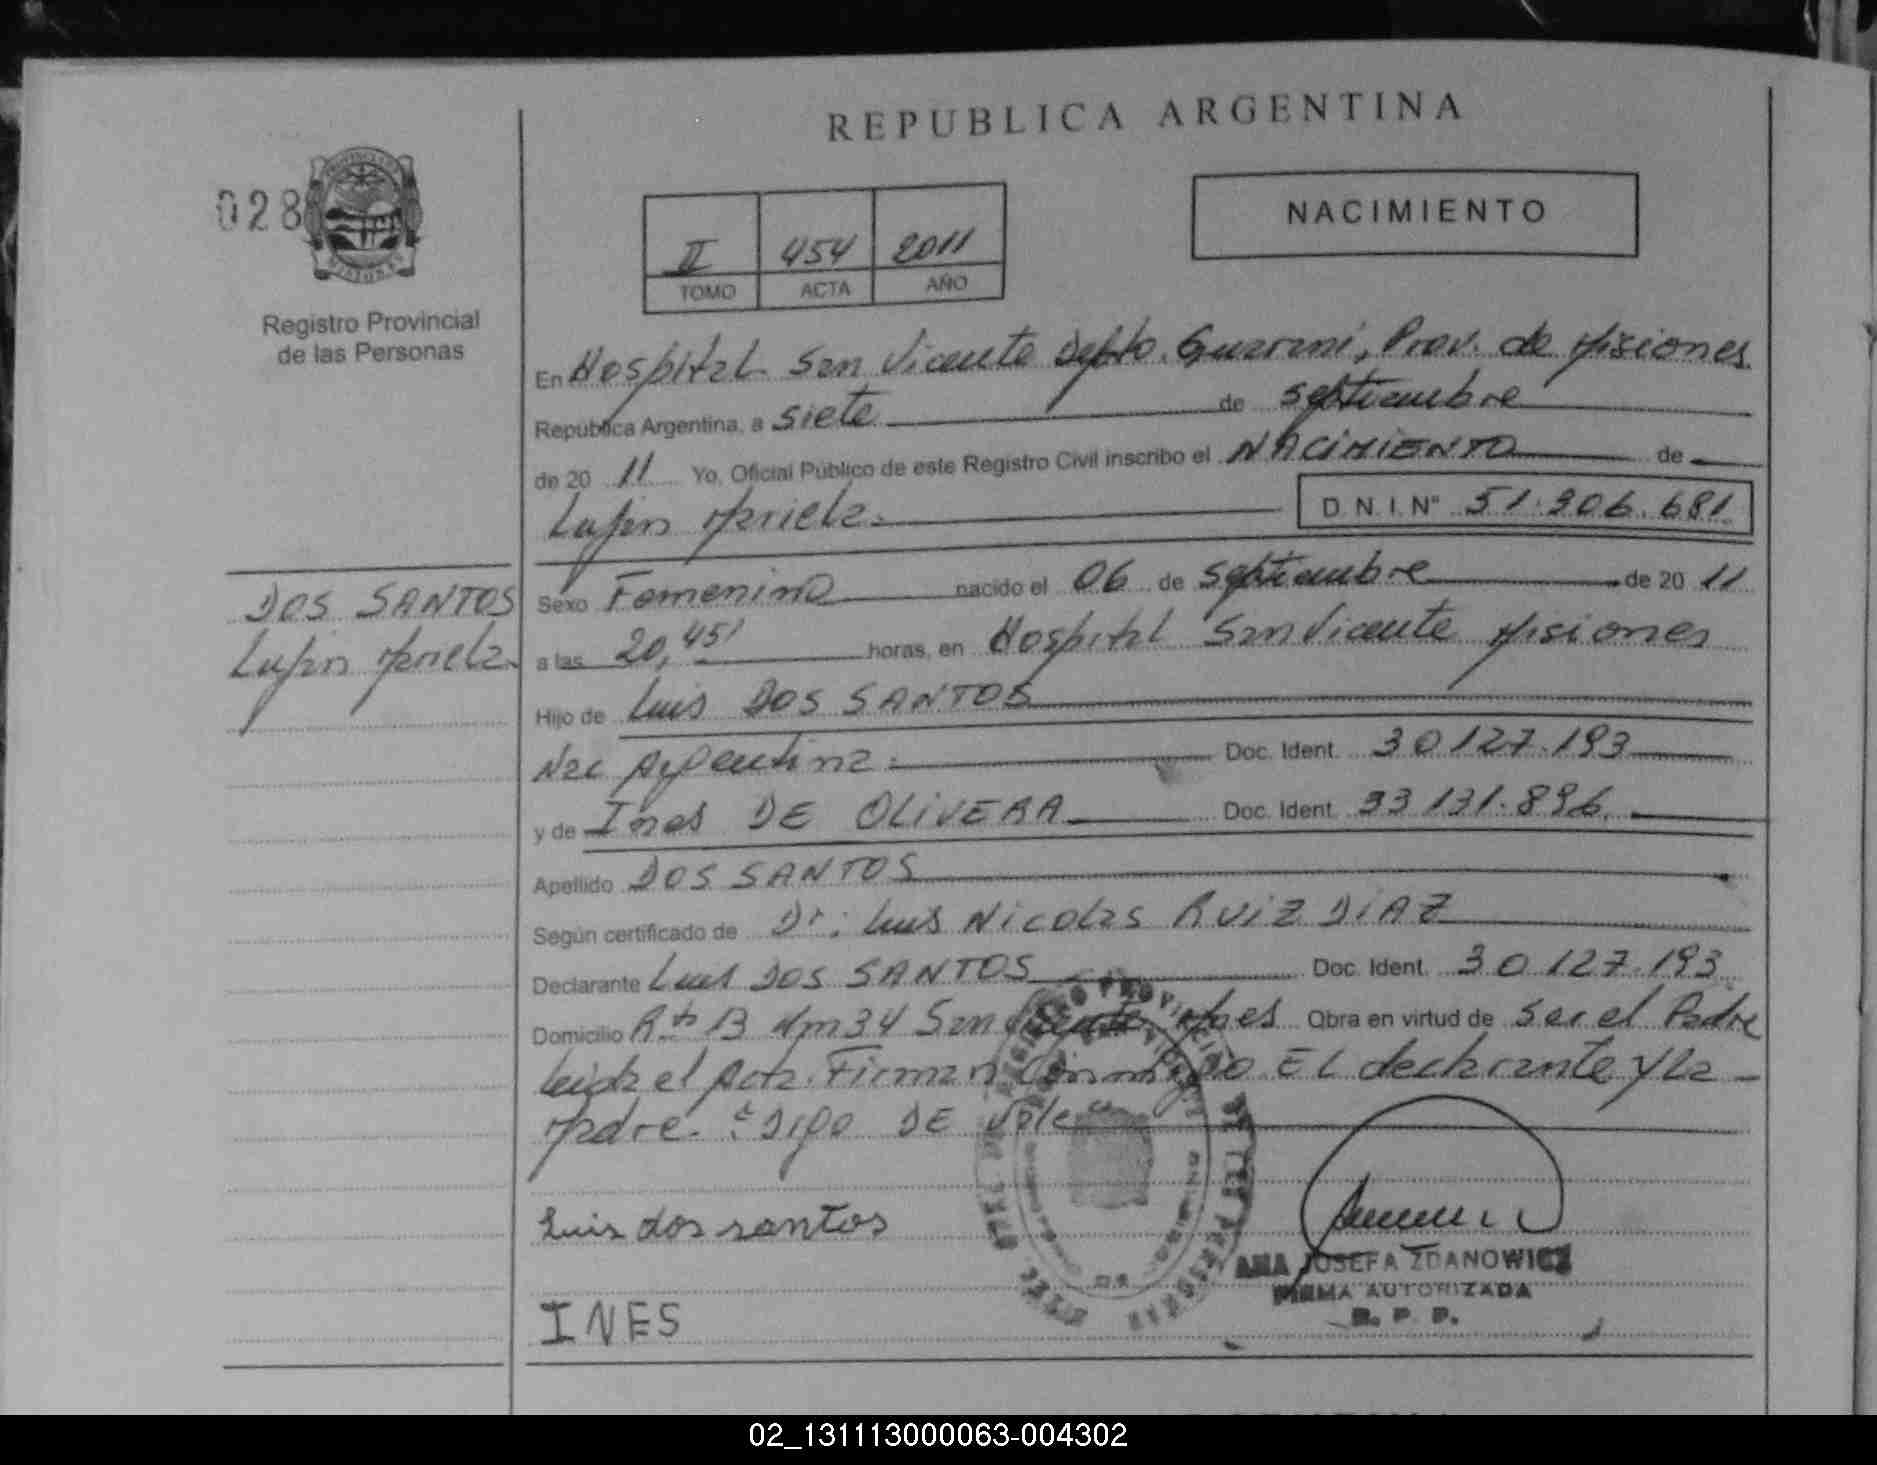 REPUBLICA ARGENTINA
028
NACIMIENTO
II 454 2011
TOMO ACTA AÑO
Registro Provincial
de las Personas
En Hospital San Vicente Depto. Guarani, Prov. de Misiones.
Republica Argentina, a siete de septiembre
de 20 11 Yo, Oficial Público de este Registro Civil inscribo el NACIMIENTO de
Lujan Mariela. D.N.I. Nº 51.306.681
DOS SANTOS
Lujan Mariela.
Sexo Femenino nacido el 06 de septiembre de 20 11
a las 20,45' horas, en Hospital San Vicente Misiones
Hijo de Luis DOS SANTOS
Nac Argentina. Doc. Ident. 30127.193
y de Ines DE OLIVERA Doc. Ident. 33131.896.
Apellido DOS SANTOS
Según certificado de Dr: Luis Nicolas RUIZ DIAZ
Declarante Luis DOS SANTOS Doc. Ident. 30127.193
Domicilio Rta 13 Km 34 San Vicente Mnes Obra en virtud de ser el Padre
leida el Acta. Firman Conmigo EL declarante y la
Madre. Digo DE Vale
Luis dos santos
ANA JOSEFA ZDANOWICZ
FIRMA AUTORIZADA
R. P. P.
INES
02_131113000063-004302